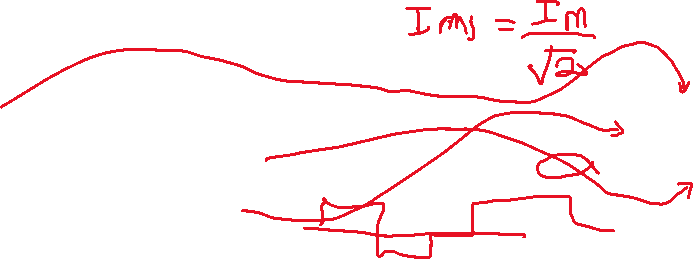 Ims = Im/√2